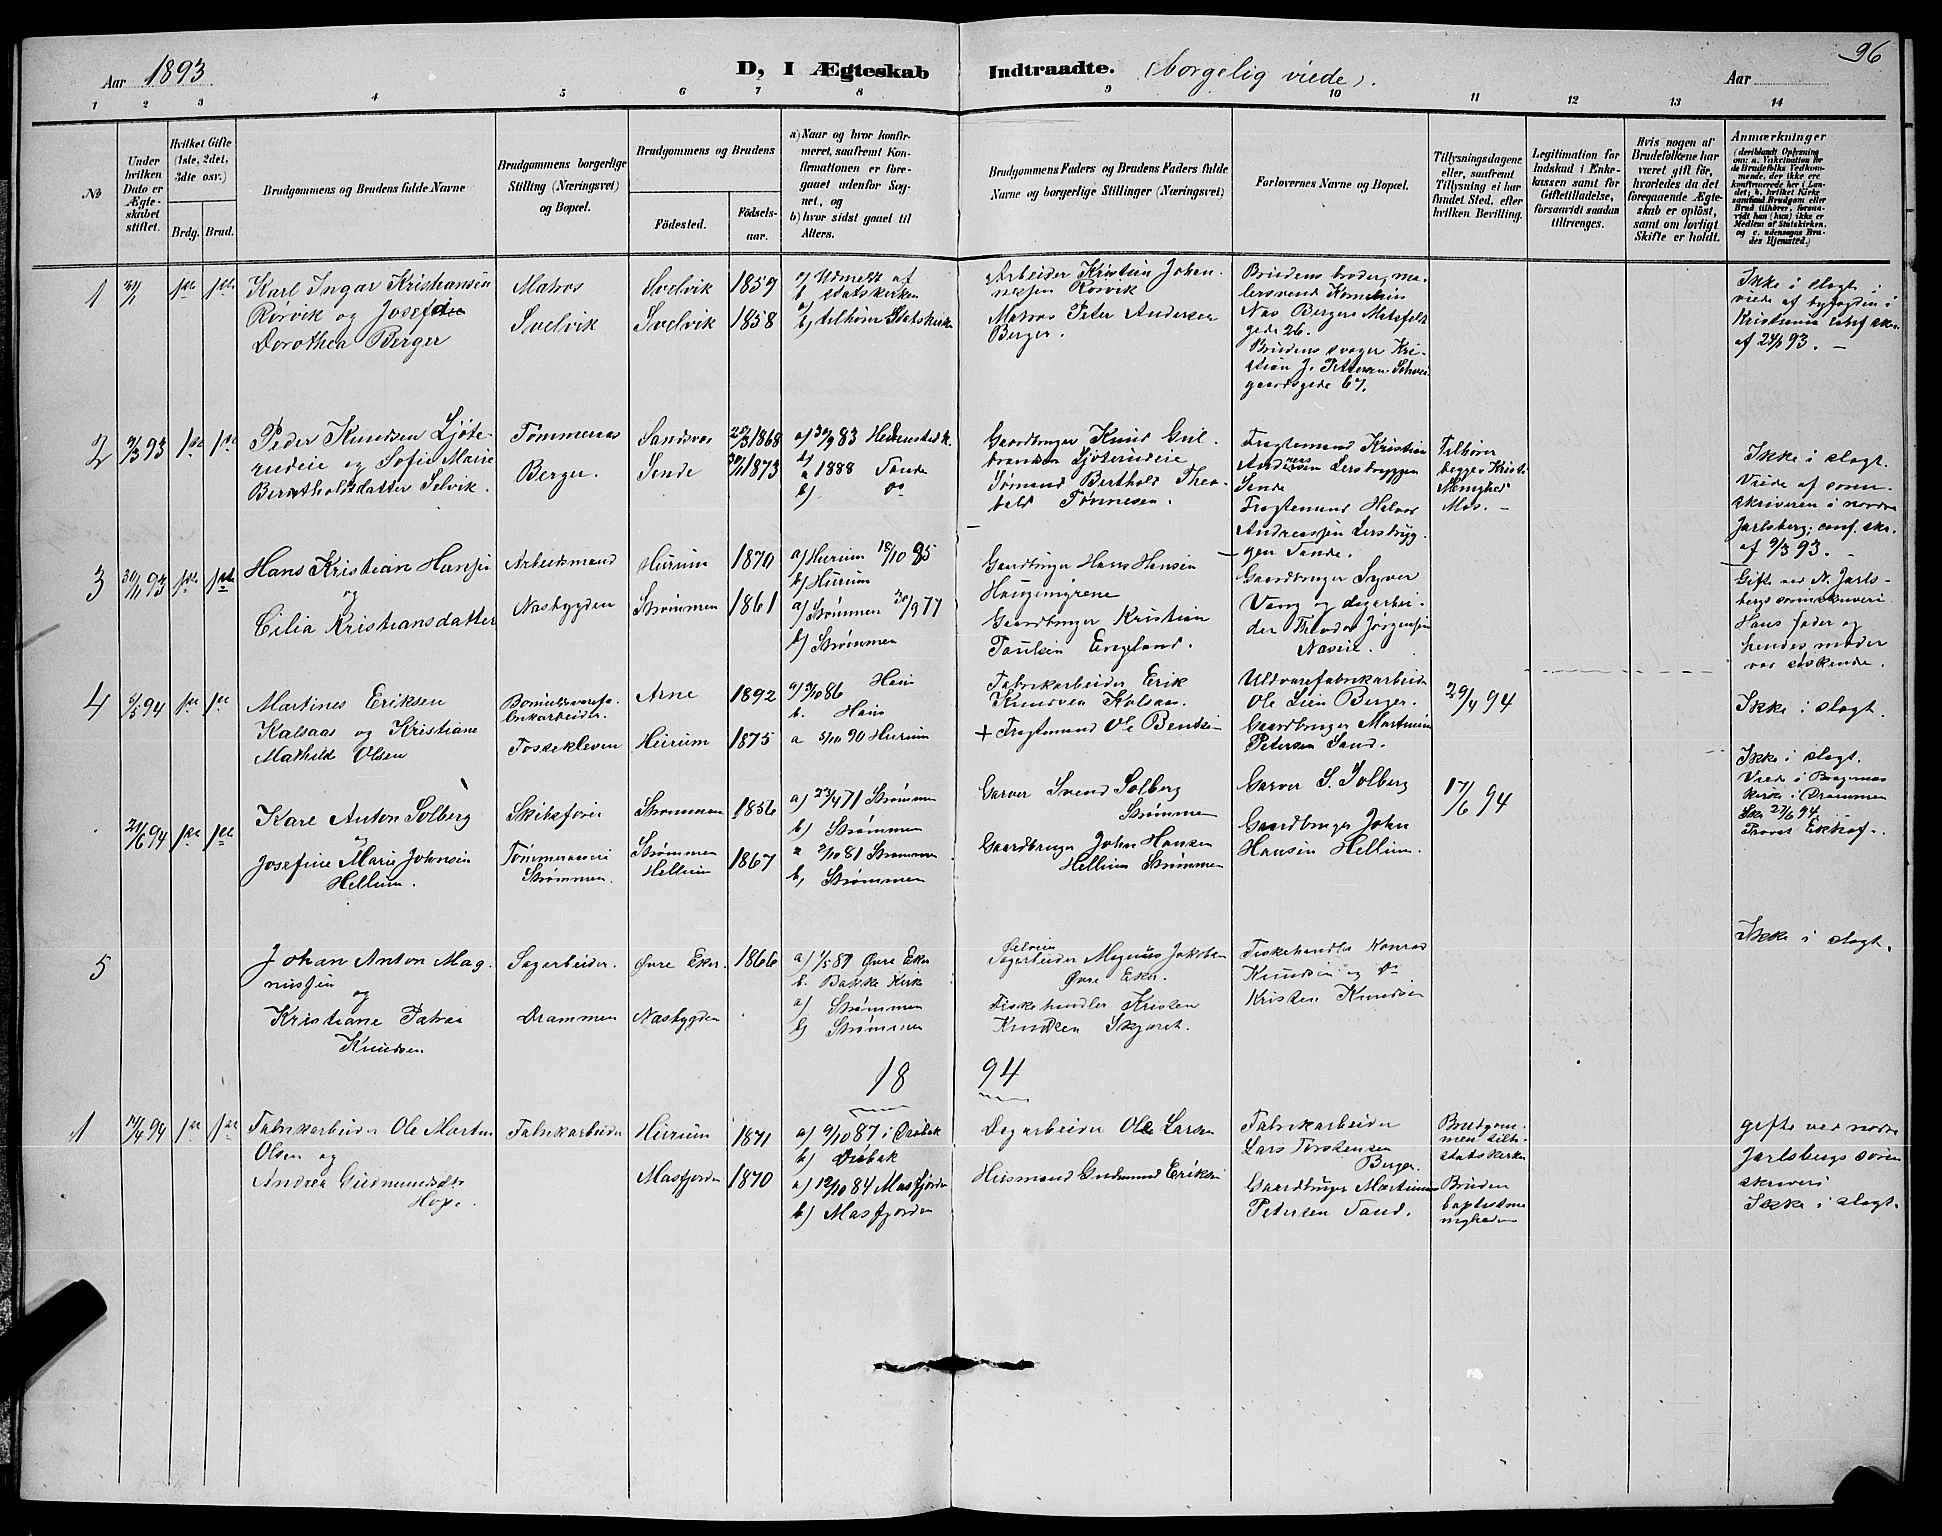 96
Aar 1893
D, I Ægteskab Indtraadte. (borgelig viede).
Aar
1 2 3 4 5 6 7 8 9 10 11 12 13 14
No
Under hvilken Dato er Ægteskabet stiftet.
Hvilket Gifte (1ste, 2det, 3die osv.)
Brdg. Brud.
Brudgommens og Brudens fulde Navne
Brudgommens borgerlige Stilling (Næringsvei) og Bopæl.
Brudgommens og Brudens
Fødested.
Fødselsaar.
a) Naar og hvor konfirmeret, saafremt Konfirmationen er foregaaet udenfor Sognet, og
b) hvor sidst gaaet til Alters.
Brudgommens Faders og Brudens Faders fulde Navne og borgerlige Stillinger (Næringsvei)
Forlovernes Navne og Bopæl.
Tillysningsdagene eller, saafremt Tillysning ei har fundet Sted, efter hvilken Bevilling.
Legitimation for Indskud i Enkekassen samt for Giftetilladelse, forsaavidt saadan tiltrænges.
Hvis nogen af Brudefolkene har været gift før, hvorledes da det foregaaende Ægteskab er opløst, samt om lovligt Skifte er holdt.
Anmærkninger (deriblandt Oplysning om: a. Vakcination for de Brudefolks Vedkommende, der ikke ere konfirmerede her i Landet; b. hvilket Kirkesamfund Brudgom eller Brud tilhører, forsaavidt han (hun) ikke er Medlem af Statskirken, og c. udensogns Brudes Hjemsted.)
1 31/1 1ste 1ste
Karl Ingar Kristiansen
Rørvik og Josefine
Dorothea Berger
Matros
Svelvik
Svelvik 1859
Svelvik 1858
a) Udmeldt af
b) statskirken
a)
b) tilhører Statskirken
Arbeider Kristian Johannessen Rørvik
Matros Peter Andersen
Berger.
Brudens broder, malersvend
Berger
gade 26.
Brudens svoger Kristian J. Pettersen
gaardsgade 67.
Ikke i slagt.
viede af byfogden i
Kristiania
af 24/1 93.
2 9/3 93 1ste 1ste
Peder Knudsen Ljøterudeie og Sofie Marie
Berntholdsdatter Selvik.
Tømmeraas
Berger.
Sandsvær 22/3 1868
Sande 30/1 1873
a) 30/9 83
b)
a) 1888 Sande
b) do
Gaardbruger Knud Gulbrandsen Ljøterudeie
Sømand Berthold Theobald Tønnesen.
Fragtemand Kristian
Andersen Lersbryggen
Sande
Fragtemand Halvor
Andreassen Lersbryggen Sande.
Tilhører
begge Kristi
Menighed
Mos.
Ikke i slagt.
Viede af sorenskriveren i nordre
Jarlsberg; conf. ska.
af 9/3 93.
3 30/11 93 1ste 1ste
Hans Kristian Hansen
og
Cilia Kristiansdatter
Arbeidsmand
Nasbygden
Hurum 1870
Strømmen 1861
a) Hurum 18/10 85
b) Hurum
a) Strømmen 30/9 77
b) Strømmen
Gaardbruger Hans Hansen
Haugengrene
Gaardbruger Kristian
Paulsen Engeland.
Gaardbruger Syver
Vang og dagarbeider Theodor Jørgensen
Gifte ved N. Jarlsbergs sorenskriveri
Hans fader og
hendes moder
var søskende.
4 5/5 94 1ste 1ste
Martines Eriksen
Kalsaas og Kristiane
Mathilde Olsen
Bomuldsvarefabrikarbeider
Fossekleven
Arne 1892
Hurum 1875
a) 3/10 86 Haus
b. Haus
a 5/10 90 Hurum
Fabrikarbeider Erik
Knudsen Kalsaas.
+ Fragtemand Ole Bentsen
Uldvarefabrikarbeider
Ole Lien Berger.
Gaardbruger Martinius
Petersen Sand.
29/4 94
Ikke i slagt.
21/6 94 1ste 1ste
Kare Anton Solberg
og
Josefine Marie Johnsen
Hellum.
Skibsfører
Tømmeraaseie
Strømmen.
Strømmen 1856
Strømmen
Hellum 1867
a) 23/4 71 Strømmen
b) Strømmen
a 2/10 81 Strømmen
b) Strømmen
Garver Svend Solberg
Strømmen
Gaardbruger Johan Hansen
Hellum Strømmen
Garver S. Solberg
Gaardbruger John
Hansen Hellum.
17/6 94
Ikke i slagt.
Viede i Bragernes
kirke i Drammen
Ska 27/6 94
Provst
5
Johan Anton Magnussen
og
Kristiane Petrea
Knudsen
Sagarbeider.
Drammen
Øvre Eker. 1866
Nasbygden
a) 1/5 87 Øvre Eker
b. Bakke Kirk
a) Strømmen
b) Strømmen
Sagarbeider Magnus Jakobsen
Øvre Eker.
Fiskehandler Kristen
Knudsen Skjøret.
Fiskehandler Konrad
Knudsen og do
Kristen Knudsen
Ikke i slagt.
18 94
1 14/4 94 1ste 1ste
Fabrikarbeider Ole Martin
Olsen og
Andrea Gudmundsdtr
Hope.
Fabrikarbeider
Hurum 1871
Masfjorden 1870
a) 9/10 87 i Drøbak
b) Drøbak
a) 12/10 84 Masfjorden
b) Masfjorden
Dagarbeider Ole Larsen
Husmand Gudmund Eriksen
Fabrikarbeider
Lars Torstensen
Berger.
Gaardbruger Martinius
Petersen Sand.
Brudgommen tilh.
statskirken
Bruden
baptistmenigheden
gifte ved nordre
Jarlsbergs sorenskriveri
Ikke i slagt.